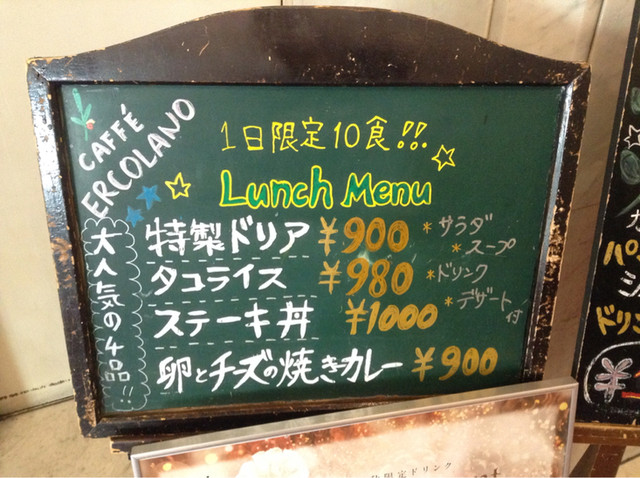 CAFFÉ
ERCOLANO
1日限定10食!!
Lunch Menu
大人気の4品!!
特製ドリア ¥900
タコライス ¥980
ステーキ丼 ¥1000
卵とチーズの焼きカレー ¥900
*サラダ
*スープ
*ドリンク
*デザート付
パン
ドリン
¥
限定ドリンク